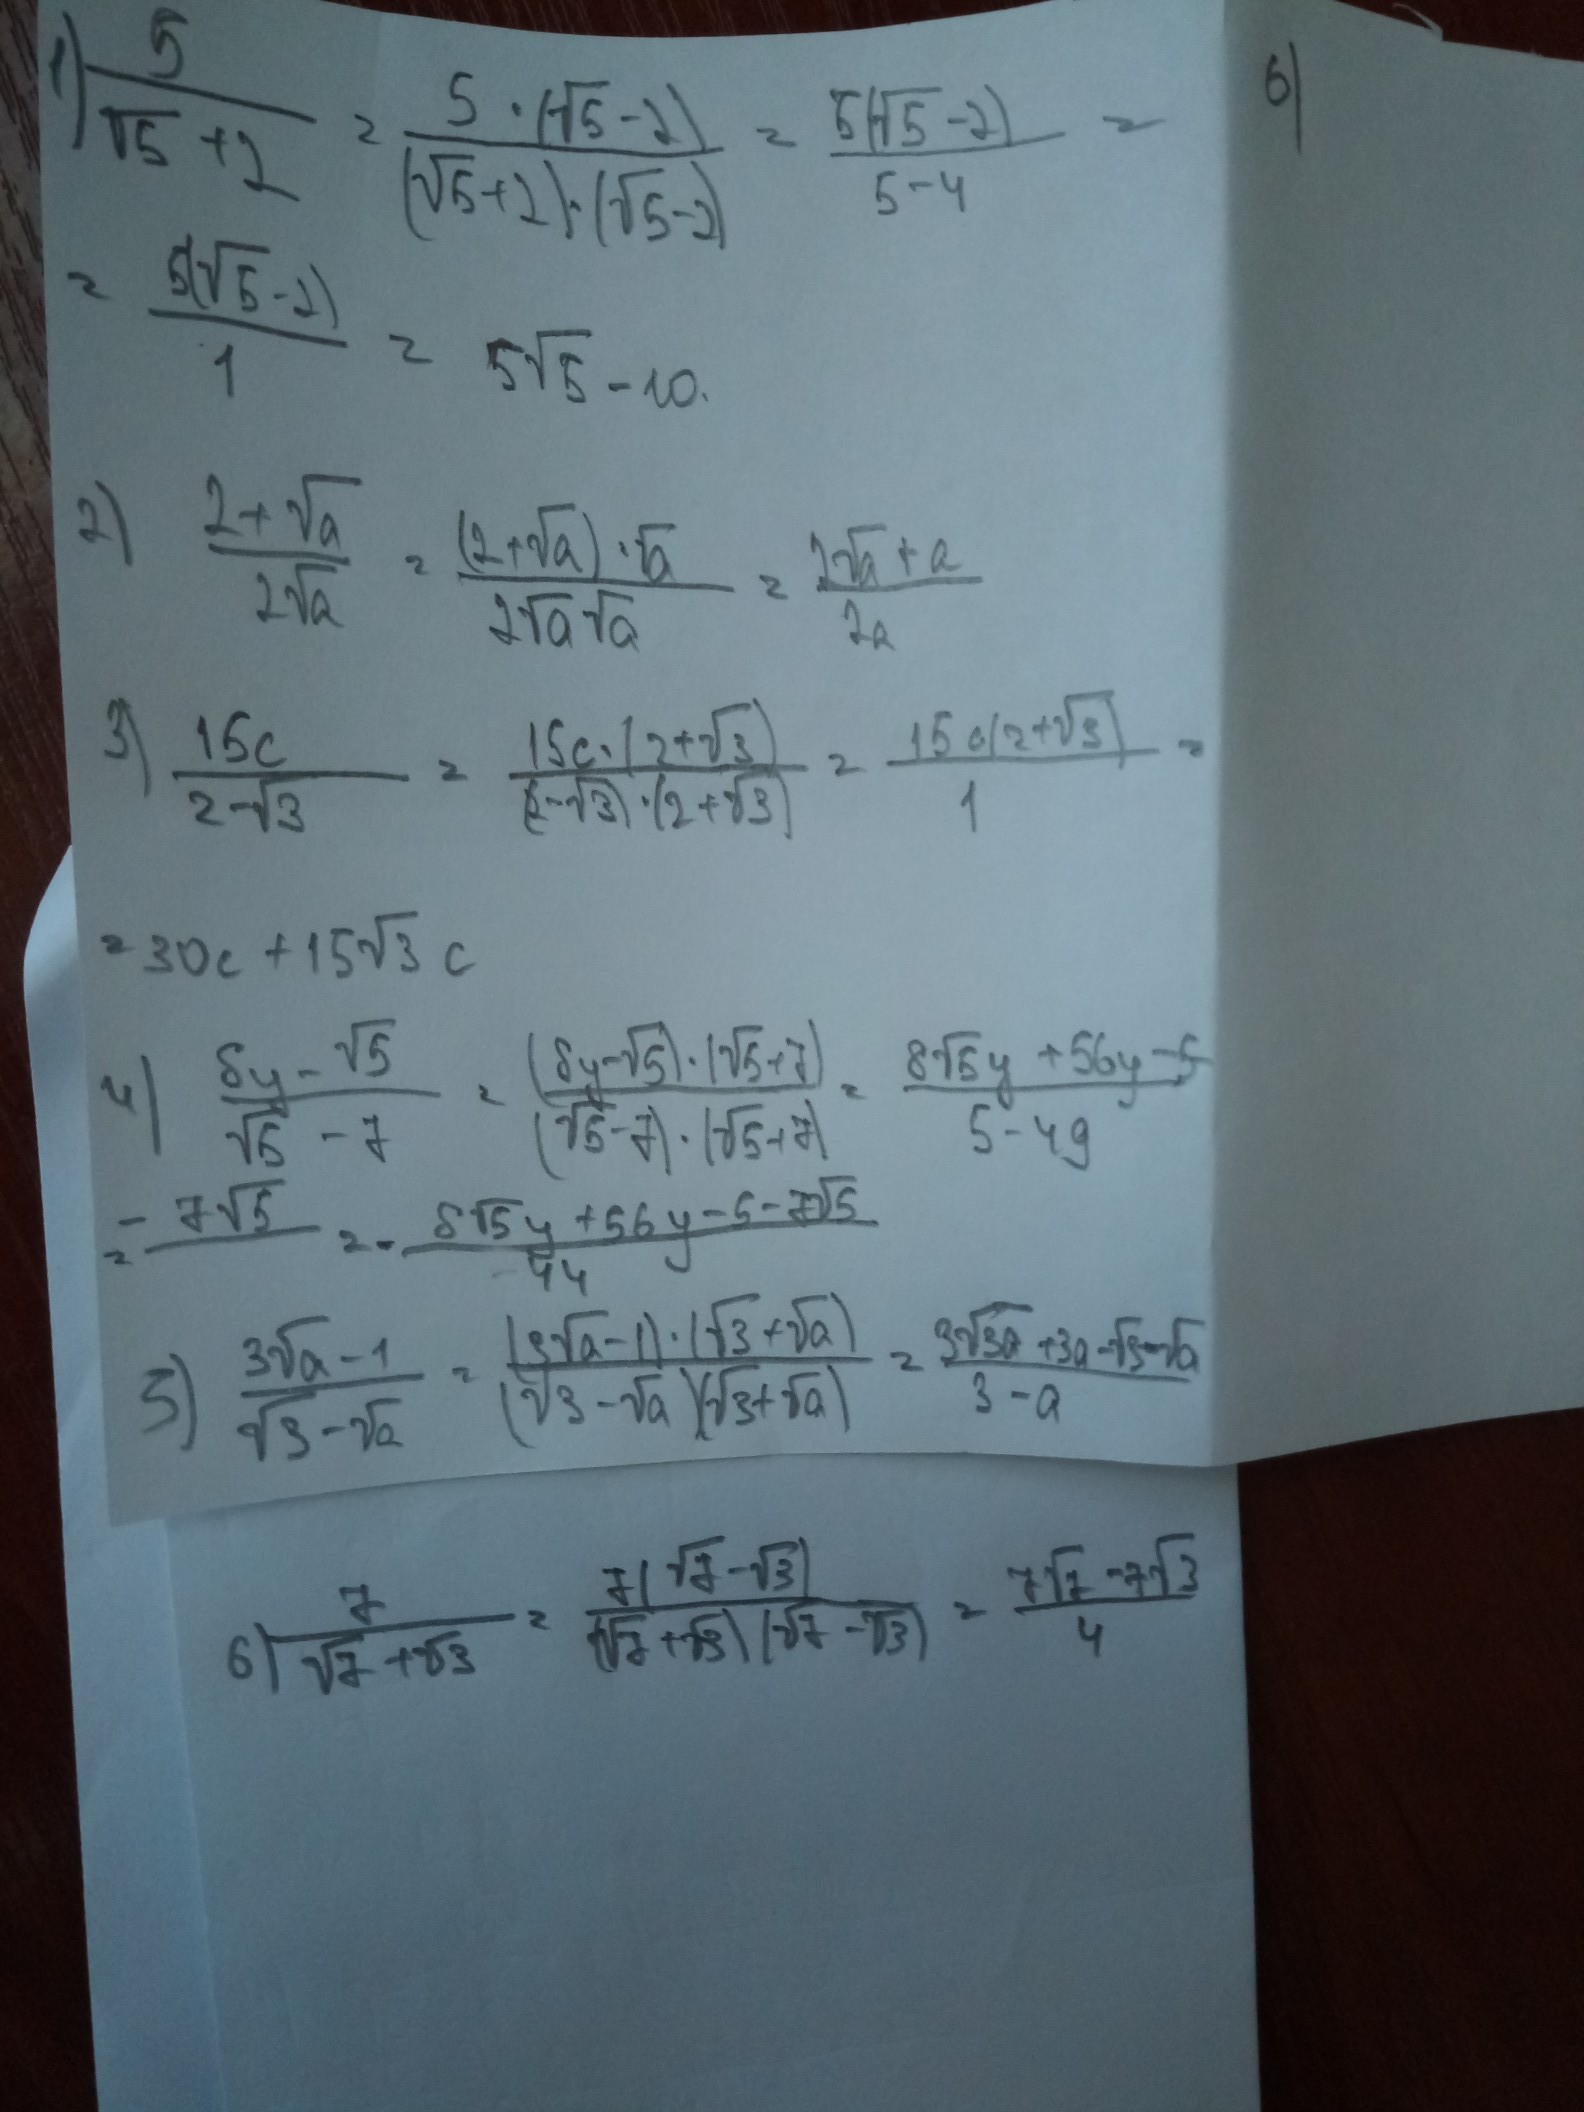 1) 5/(√5+2) = 5·(√5-2)/((√5+2)·(√5-2)) = 5(√5-2)/(5-4) =
= 5(√5-2)/1 = 5√5-10.
2) (2+√a)/(2√a) = (2+√a)·√a/(2√a√a) = (2√a+a)/(2a)
3) 15c/(2-√3) = 15c·(2+√3)/((2-√3)·(2+√3)) = 15c(2+√3)/1 =
= 30c+15√3c
4) (8y-√5)/(√5-7) = (8y-√5)·(√5+7)/((√5-7)·(√5+7)) = (8√5y+56y-5/(5-49)
= -7√5 = -(8√5y+56y-5-7√5)/44
5) (3√a-1)/(√3-√a) = (3√a-1)·(√3+√a)/((√3-√a)(√3+√a)) = (3√3a+3a-√3-√a)/(3-a)
6)
6) 7/(√7+√3) = 7(√7-√3)/((√7+√3)(√7-√3)) = (7√7-7√3)/4